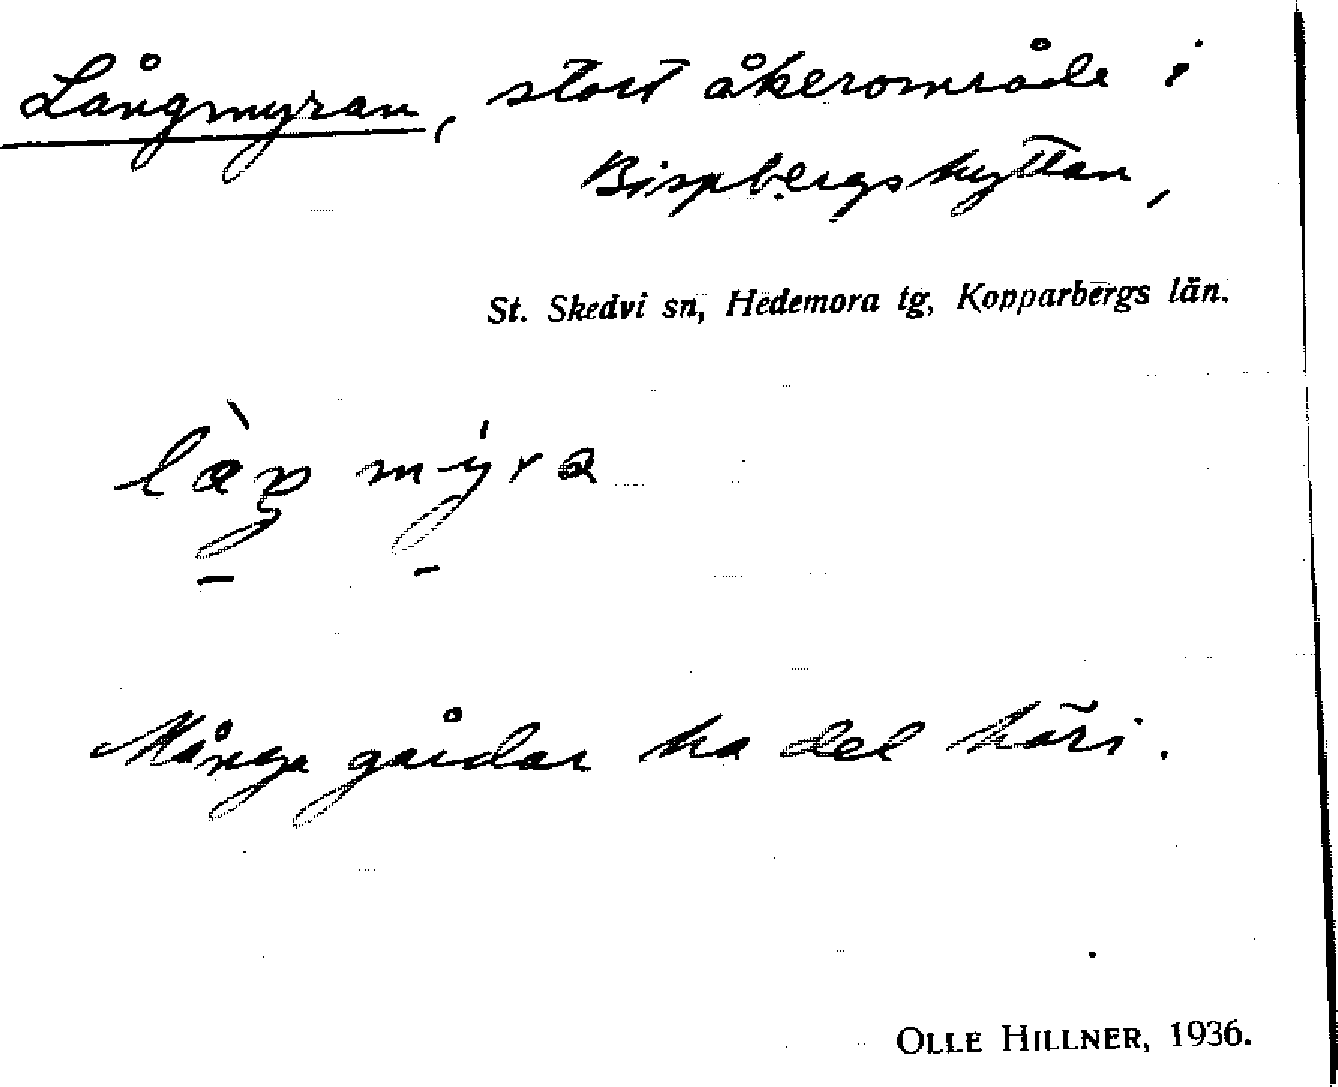 Långmyran, stort åkerområde i
Bispbergshyttan,
St. Skedvi sn, Hedemora tg, Kopparbergs län.
Många gårdar ha del häri.
OLLE HILLNER, 1936.